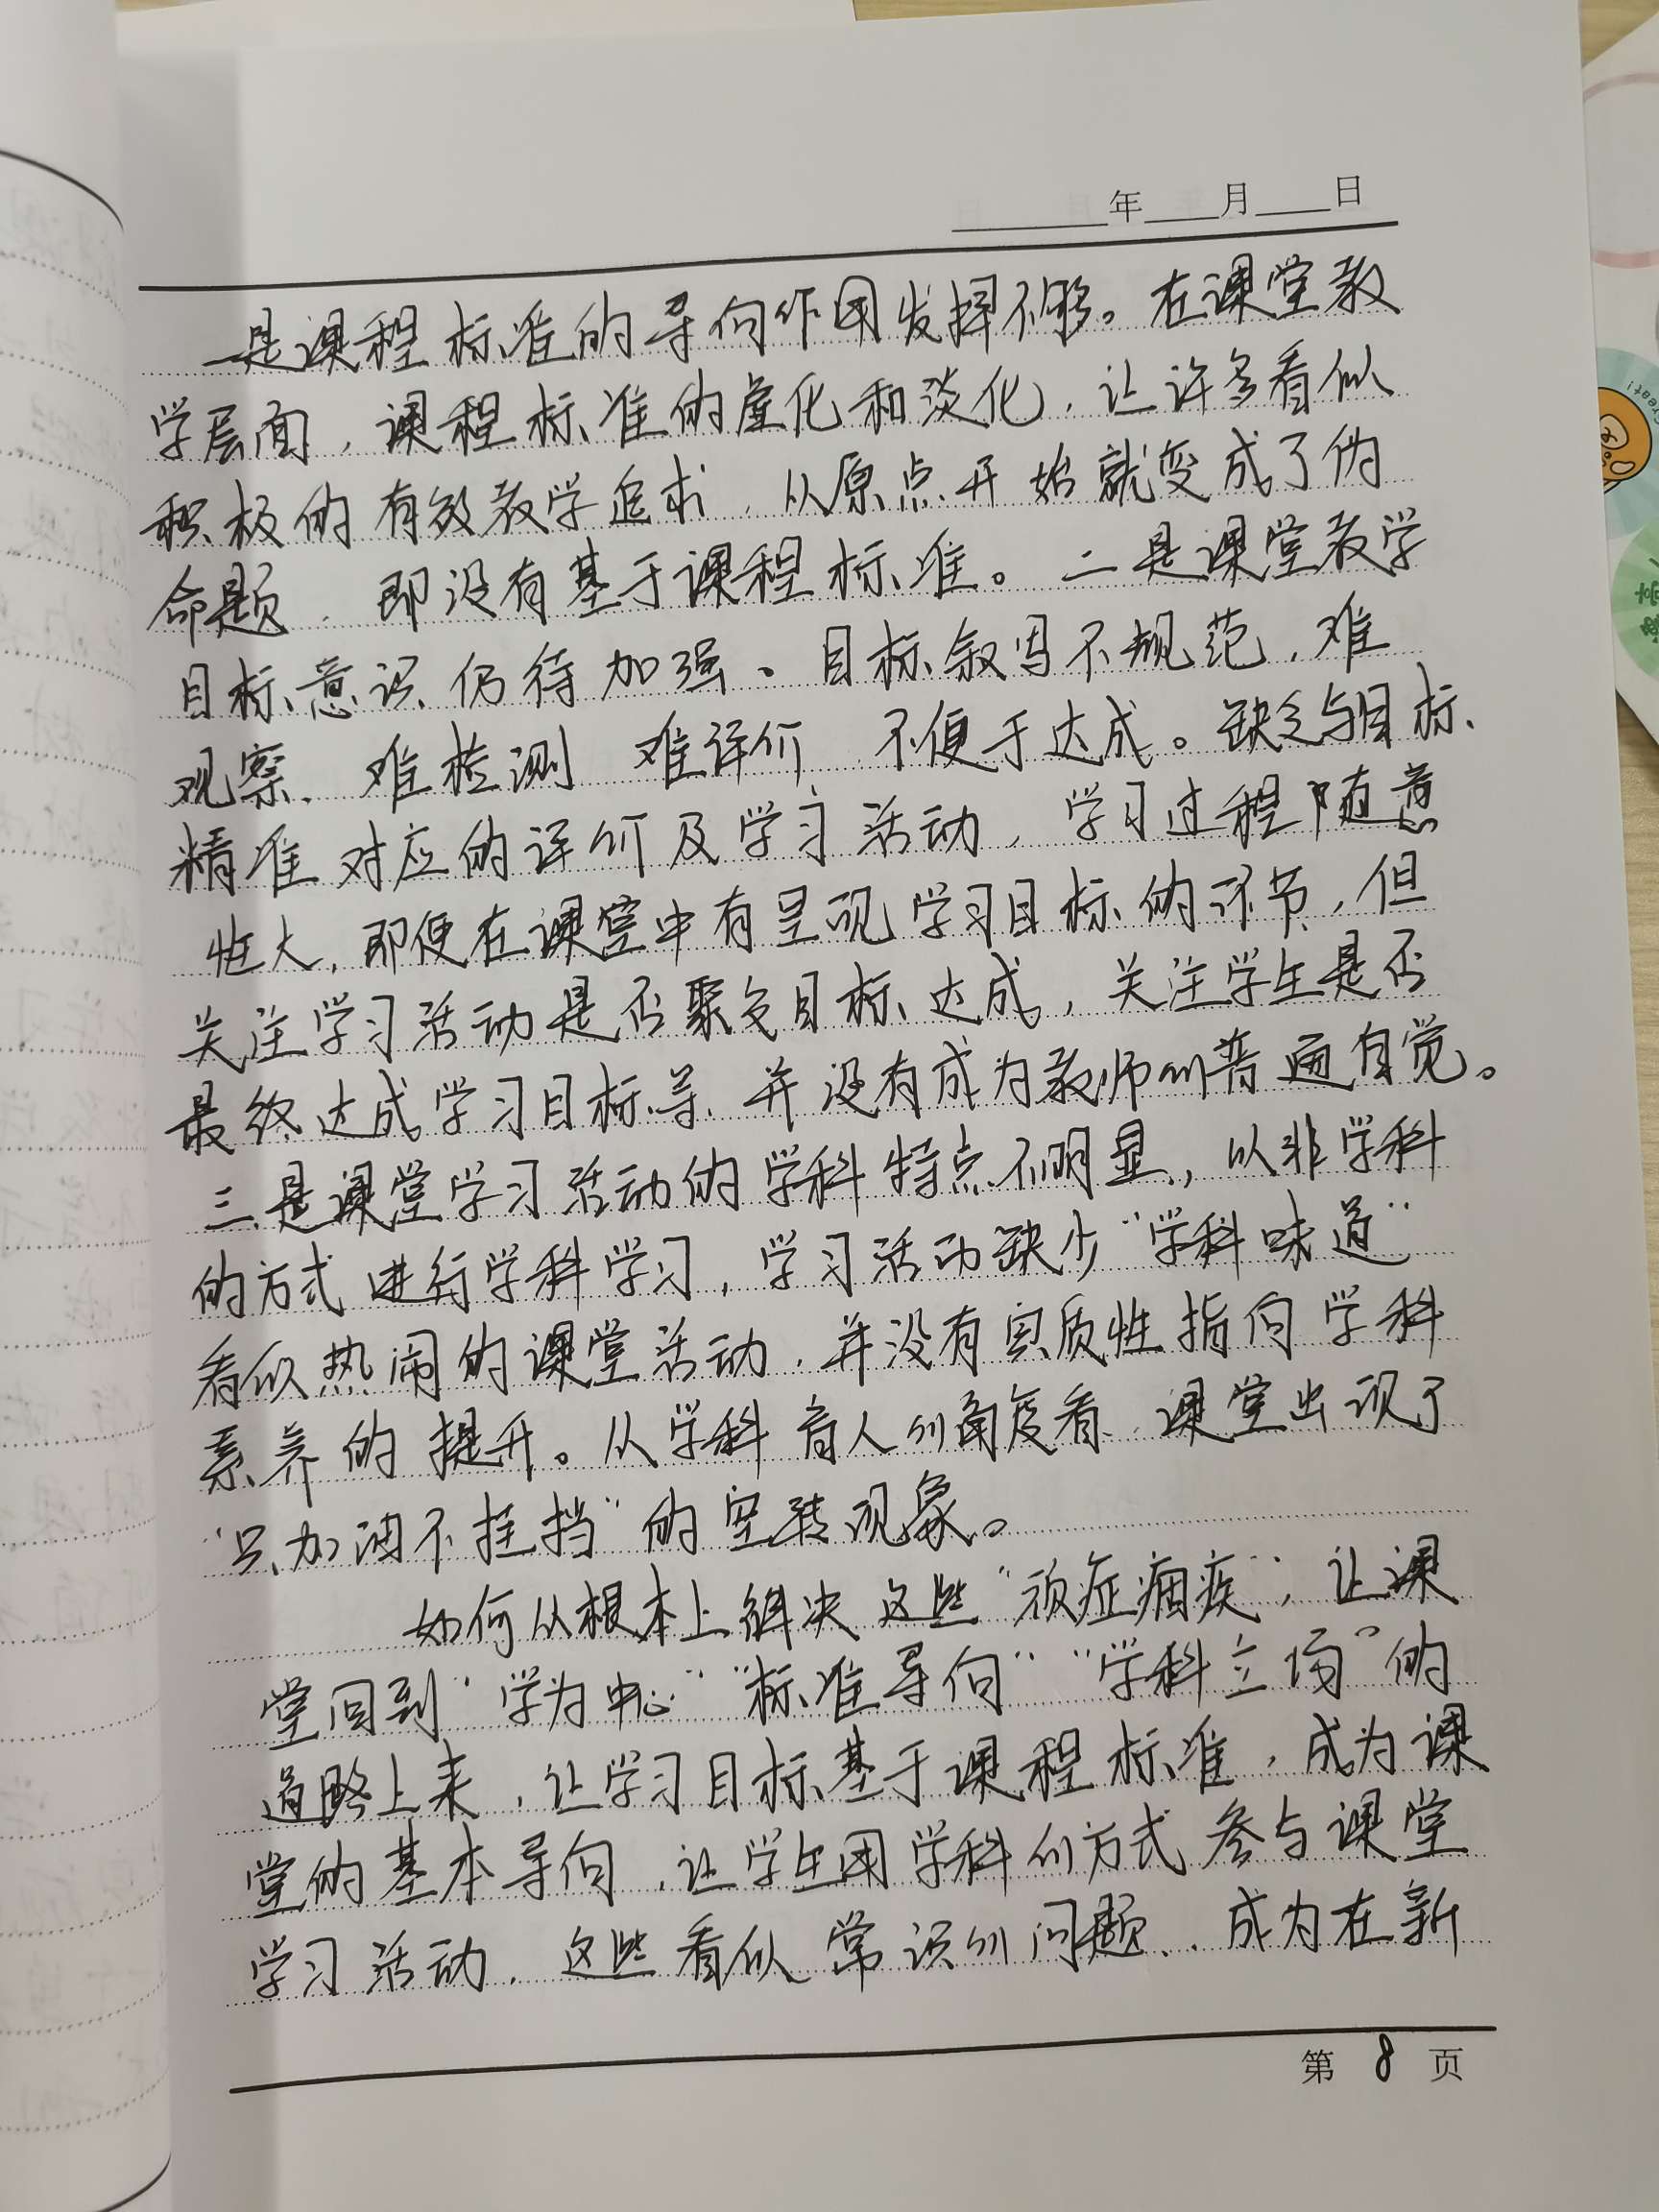 年 月 日
一是课程标准的导向作用发挥不够。在课堂教
学层面，课程标准的虚化和淡化，让许多看似
积极的有效教学追求，从原点开始就变成了伪
命题，即没有基于课程标准。二是课堂教学
目标意识仍待加强。目标叙写不规范，难
观察、难检测 难评价，不便于达成。缺乏与目标
精准对应的评价及学习活动，学习过程随意
性大，即便在课堂中有呈现学习目标的环节，但
关注学习活动是否聚交目标达成，关注学生是否
最终达成学习目标等，并没有成为教师的普遍自觉。
三是课堂学习活动的学科特点不明显，以非学科
的方式进行学科学习，学习活动缺少“学科味道”
看似热闹的课堂活动，并没有实质性指向学科
素养的提升。从学科育人的角度看，课堂出现了
“只加油不挂挡”的空转现象。
如何从根本上解决这些“顽症痼疾”，让课
堂回到“学为中心”“标准导向”“学科立场”的
道路上来，让学习目标基于课程标准，成为课
堂的基本导向，让学生用学科的方式参与课堂
学习活动，这些看似常识的问题，成为在新
第 8 页
great!